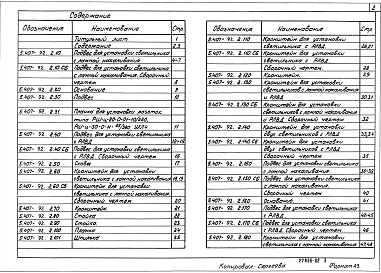 2
Содержание
Обозначение Наименование Стр.
Титульный лист 1
Содержание 2,3
5.407-92. 2.10 Подвес для установки светильника
с лампой накаливания 4-7
5.407-92. 2.10 СБ Подвес для установки светильника
с лампой накаливания. Сборочный
чертеж 8
5.407-92. 2.20 Основание 9
5.407-92. 2.30 Подвес 10
5.407-92. 2.31
11
5.407-92. 2.40 Подвес для установки светильника
с РЛВД
5.407-92. 2.40 СБ Подвес для установки светильника
с РЛВД. Сборочный чертеж 16
5.407-92. 2.50
5.407-92. 2.60 Кронштейн для установки
светильника с лампой накаливания
5.407-92. 2.60 СБ Кронштейн для установки
светильника с лампой накаливания
Сборочный чертеж 20
5.407-92. 2.70 Кронштейн 21
5.407-92. 2.80 Стойка 22
5.407-92. 2.90 Стойка 23
5.407-92. 2.100 24
5.407-92. 2.101 Шпилька 25
Обозначение Наименование Стр.
5.407-92. 2.110 Кронштейн для установки
светильника с РЛВД
5.407-92. 2.110 СБ Кронштейн для установки
светильника с РЛВД.
Сборочный чертеж 28
5.407-92. 2.120 Кронштейн. 29
5.407-92. 2.130 Кронштейн для установки
светильников с лампой накаливания
и РЛВД 30,31
5.407-92. 2.130 СБ Кронштейн для установки
светильников с лампой накаливания
и РЛВД. Сборочный чертеж 32
5.407-92. 2.140 Кронштейн для установки
двух светильников с РЛВД 33,34
5.407-92. 2.140 СБ Кронштейн для установки
двух светильников с РЛВД.
Сборочный чертеж 35
5.407-92. 2.150 Подвес для установки светильника
с лампой накаливания.
5.407-92. 2.150 СБ Подвес для установки светильника
с лампой накаливания.
Сборочный чертеж 40
5.407-92. 2.160 Основание. 41
5.407-92. 2.170 Подвес для установки светильника
с РЛВД. 42-45
5.407-92. 2.170 СБ Подвес для установки светильника
с РЛВД. Сборочный чертеж 46
5.407-92. 2.180 Кронштейн для установки
светильника с лампой накаливания 47,48
Копировал: Сергеева Формат А3